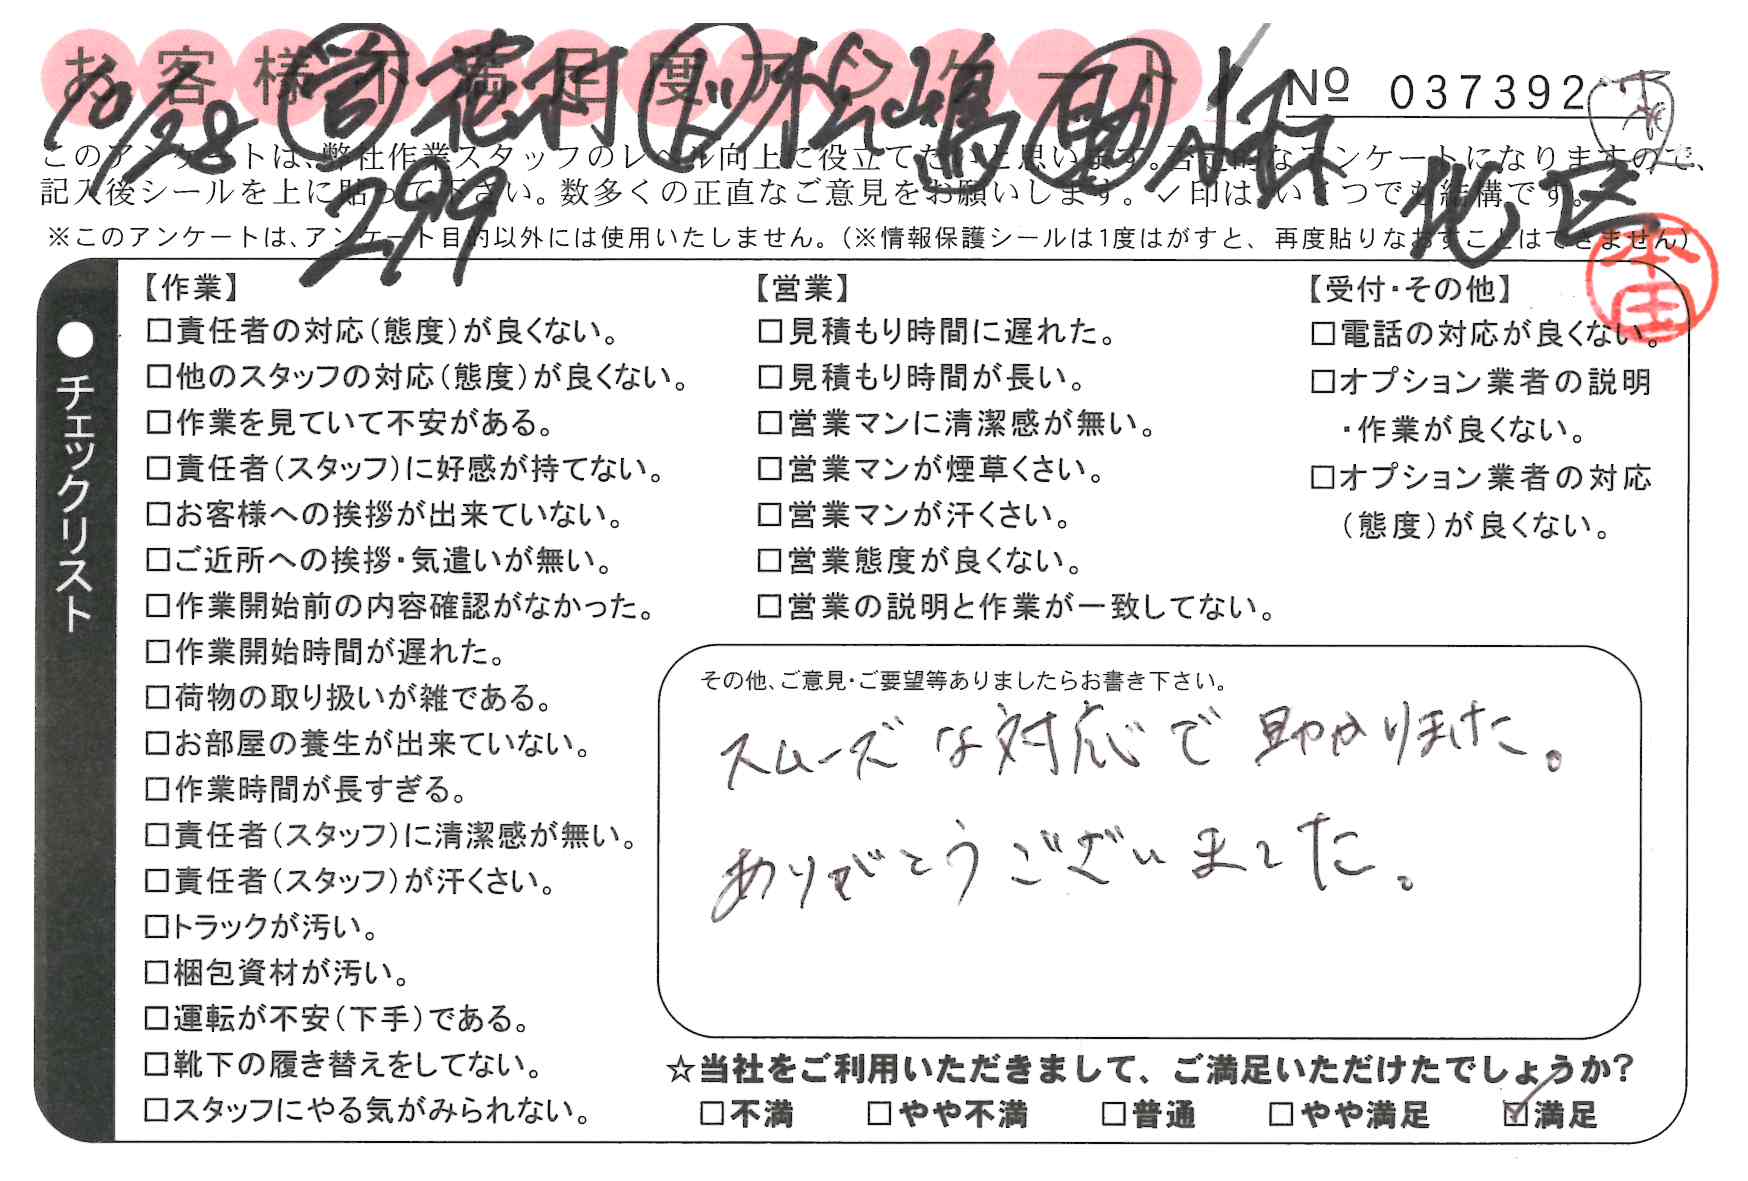 お客様不満足度アンケート
10/28 営 花村 ト 松嶋 助 小林
№ 037392
299 北区
このアンケートは、弊社作業スタッフのレベル向上に役立てたいと思います。否定的なアンケートになりますので、
記入後シールを上に貼って下さい。数多くの正直なご意見をお願いします。✓印は、いくつでも結構です。
※このアンケートは、アンケート目的以外には使用いたしません。（※情報保護シールは1度はがすと、再度貼りなおすことはできません）
●チェックリスト
【作業】
□責任者の対応（態度）が良くない。
□他のスタッフの対応（態度）が良くない。
□作業を見ていて不安がある。
□責任者（スタッフ）に好感が持てない。
□お客様への挨拶が出来ていない。
□ご近所への挨拶・気遣いが無い。
□作業開始前の内容確認がなかった。
□作業開始時間が遅れた。
□荷物の取り扱いが雑である。
□お部屋の養生が出来ていない。
□作業時間が長すぎる。
□責任者（スタッフ）に清潔感が無い。
□責任者（スタッフ）が汗くさい。
□トラックが汚い。
□梱包資材が汚い。
□運転が不安（下手）である。
□靴下の履き替えをしてない。
□スタッフにやる気がみられない。
【営業】
□見積もり時間に遅れた。
□見積もり時間が長い。
□営業マンに清潔感が無い。
□営業マンが煙草くさい。
□営業マンが汗くさい。
□営業態度が良くない。
□営業の説明と作業が一致してない。
【受付・その他】
□電話の対応が良くない。
□オプション業者の説明
・作業が良くない。
□オプション業者の対応
（態度）が良くない。
その他、ご意見・ご要望等ありましたらお書き下さい。
スムーズな対応で助かりました。
ありがとうございました。
☆当社をご利用いただきまして、ご満足いただけたでしょうか？
□不満 □やや不満 □普通 □やや満足 ☑満足